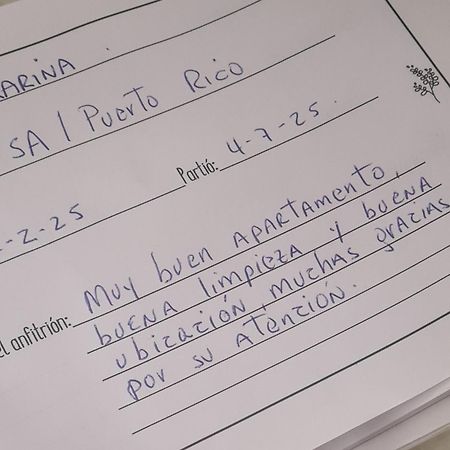 ARINA
SA / Puerto Rico
-2-25 Partió: 4-7-25.
el anfitrión: Muy buen apartamento,
buena limpieza y buena
ubicación, muchas gracias
por su atención.